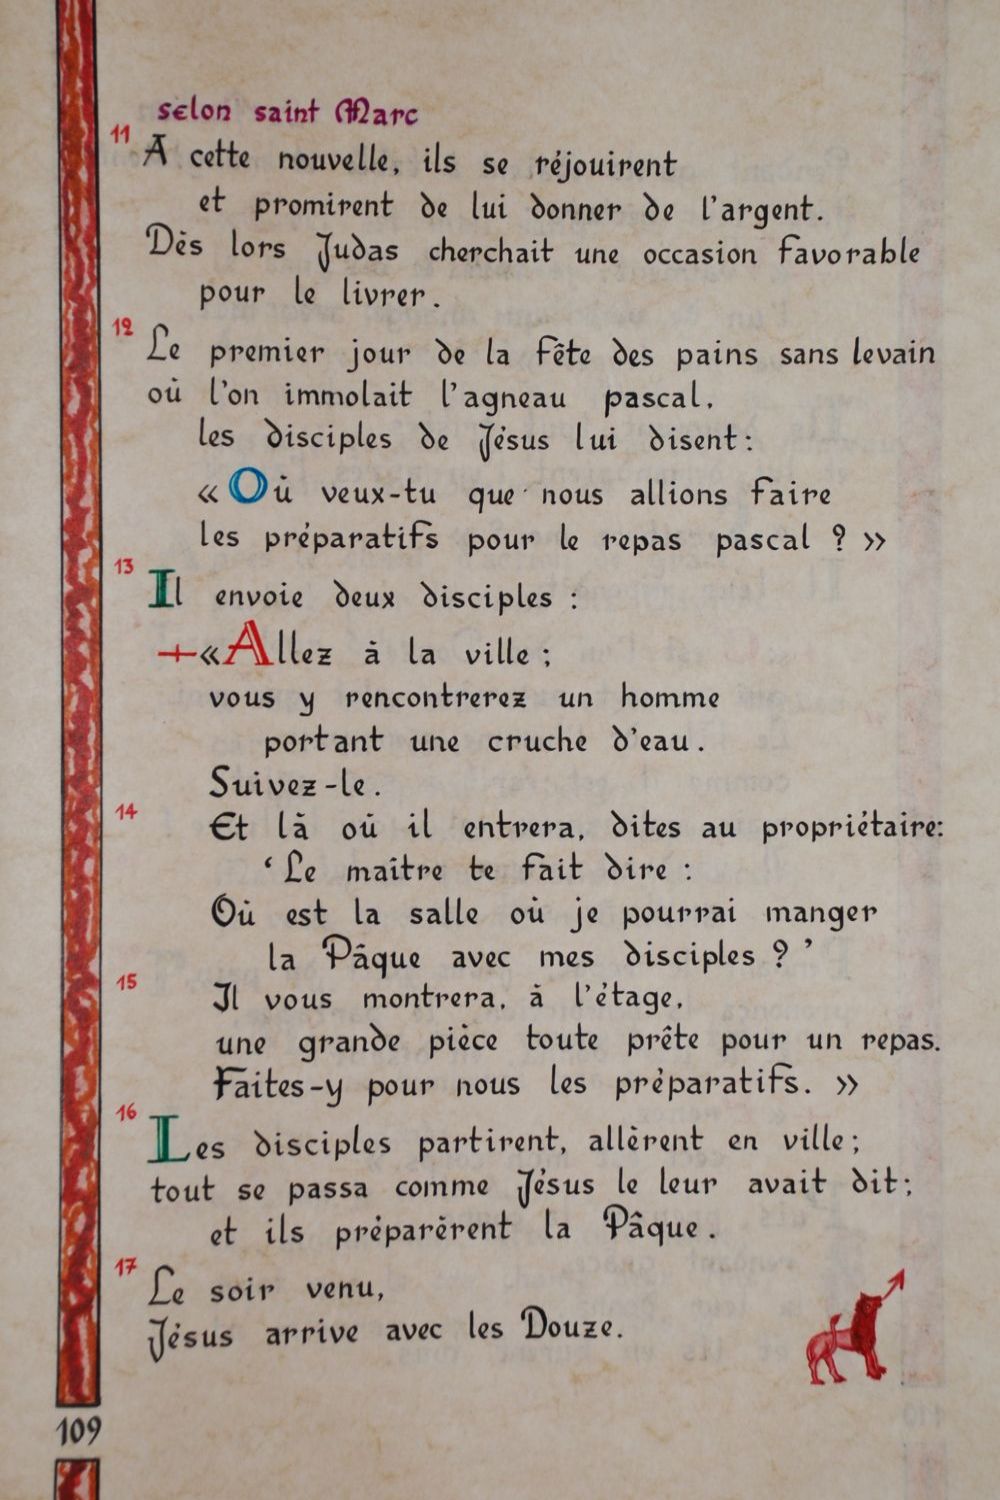 selon saint Marc
11 A cette nouvelle, ils se réjouirent
et promirent de lui donner de l'argent.
Dès lors Judas cherchait une occasion favorable
pour le livrer.
12 Le premier jour de la fête des pains sans levain
où l'on immolait l'agneau pascal,
les disciples de Jésus lui disent:
« Où veux-tu que nous allions faire
les préparatifs pour le repas pascal ? »
13 Il envoie deux disciples :
+ « Allez à la ville ;
vous y rencontrerez un homme
portant une cruche d'eau.
Suivez-le.
14 Et là où il entrera, dites au propriétaire:
‘ Le maître te fait dire :
Où est la salle où je pourrai manger
la Pâque avec mes disciples ? ’
15 Il vous montrera, à l'étage,
une grande pièce toute prête pour un repas.
Faites-y pour nous les préparatifs. »
16 Les disciples partirent, allèrent en ville ;
tout se passa comme Jésus le leur avait dit ;
et ils préparèrent la Pâque.
17 Le soir venu,
Jésus arrive avec les Douze.
109